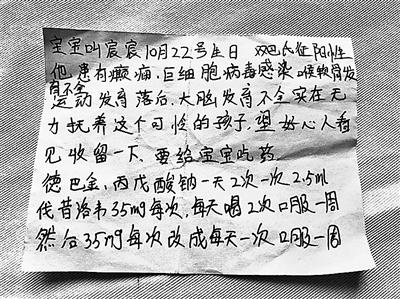 宝宝叫宸宸10月22号生日 双巴氏征阳性
他患有癫痫、巨细胞病毒感染 喉软骨发
育不全
运动发育落后、大脑发育不全实在无
力抚养这个可怜的孩子,望好心人看
见收留一下、要给宝宝吃药.
德巴金、丙戊酸钠一天2次一次2.5ml
伐昔洛韦35mg每次,每天喝2次口服一周
然后35mg每次改成每天一次口服一周